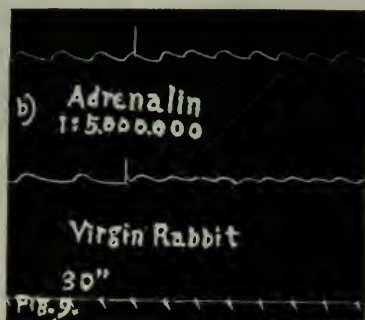 b) Adrenalin
1:5.000.000
Virgin Rabbit
30"
Fig. 9.